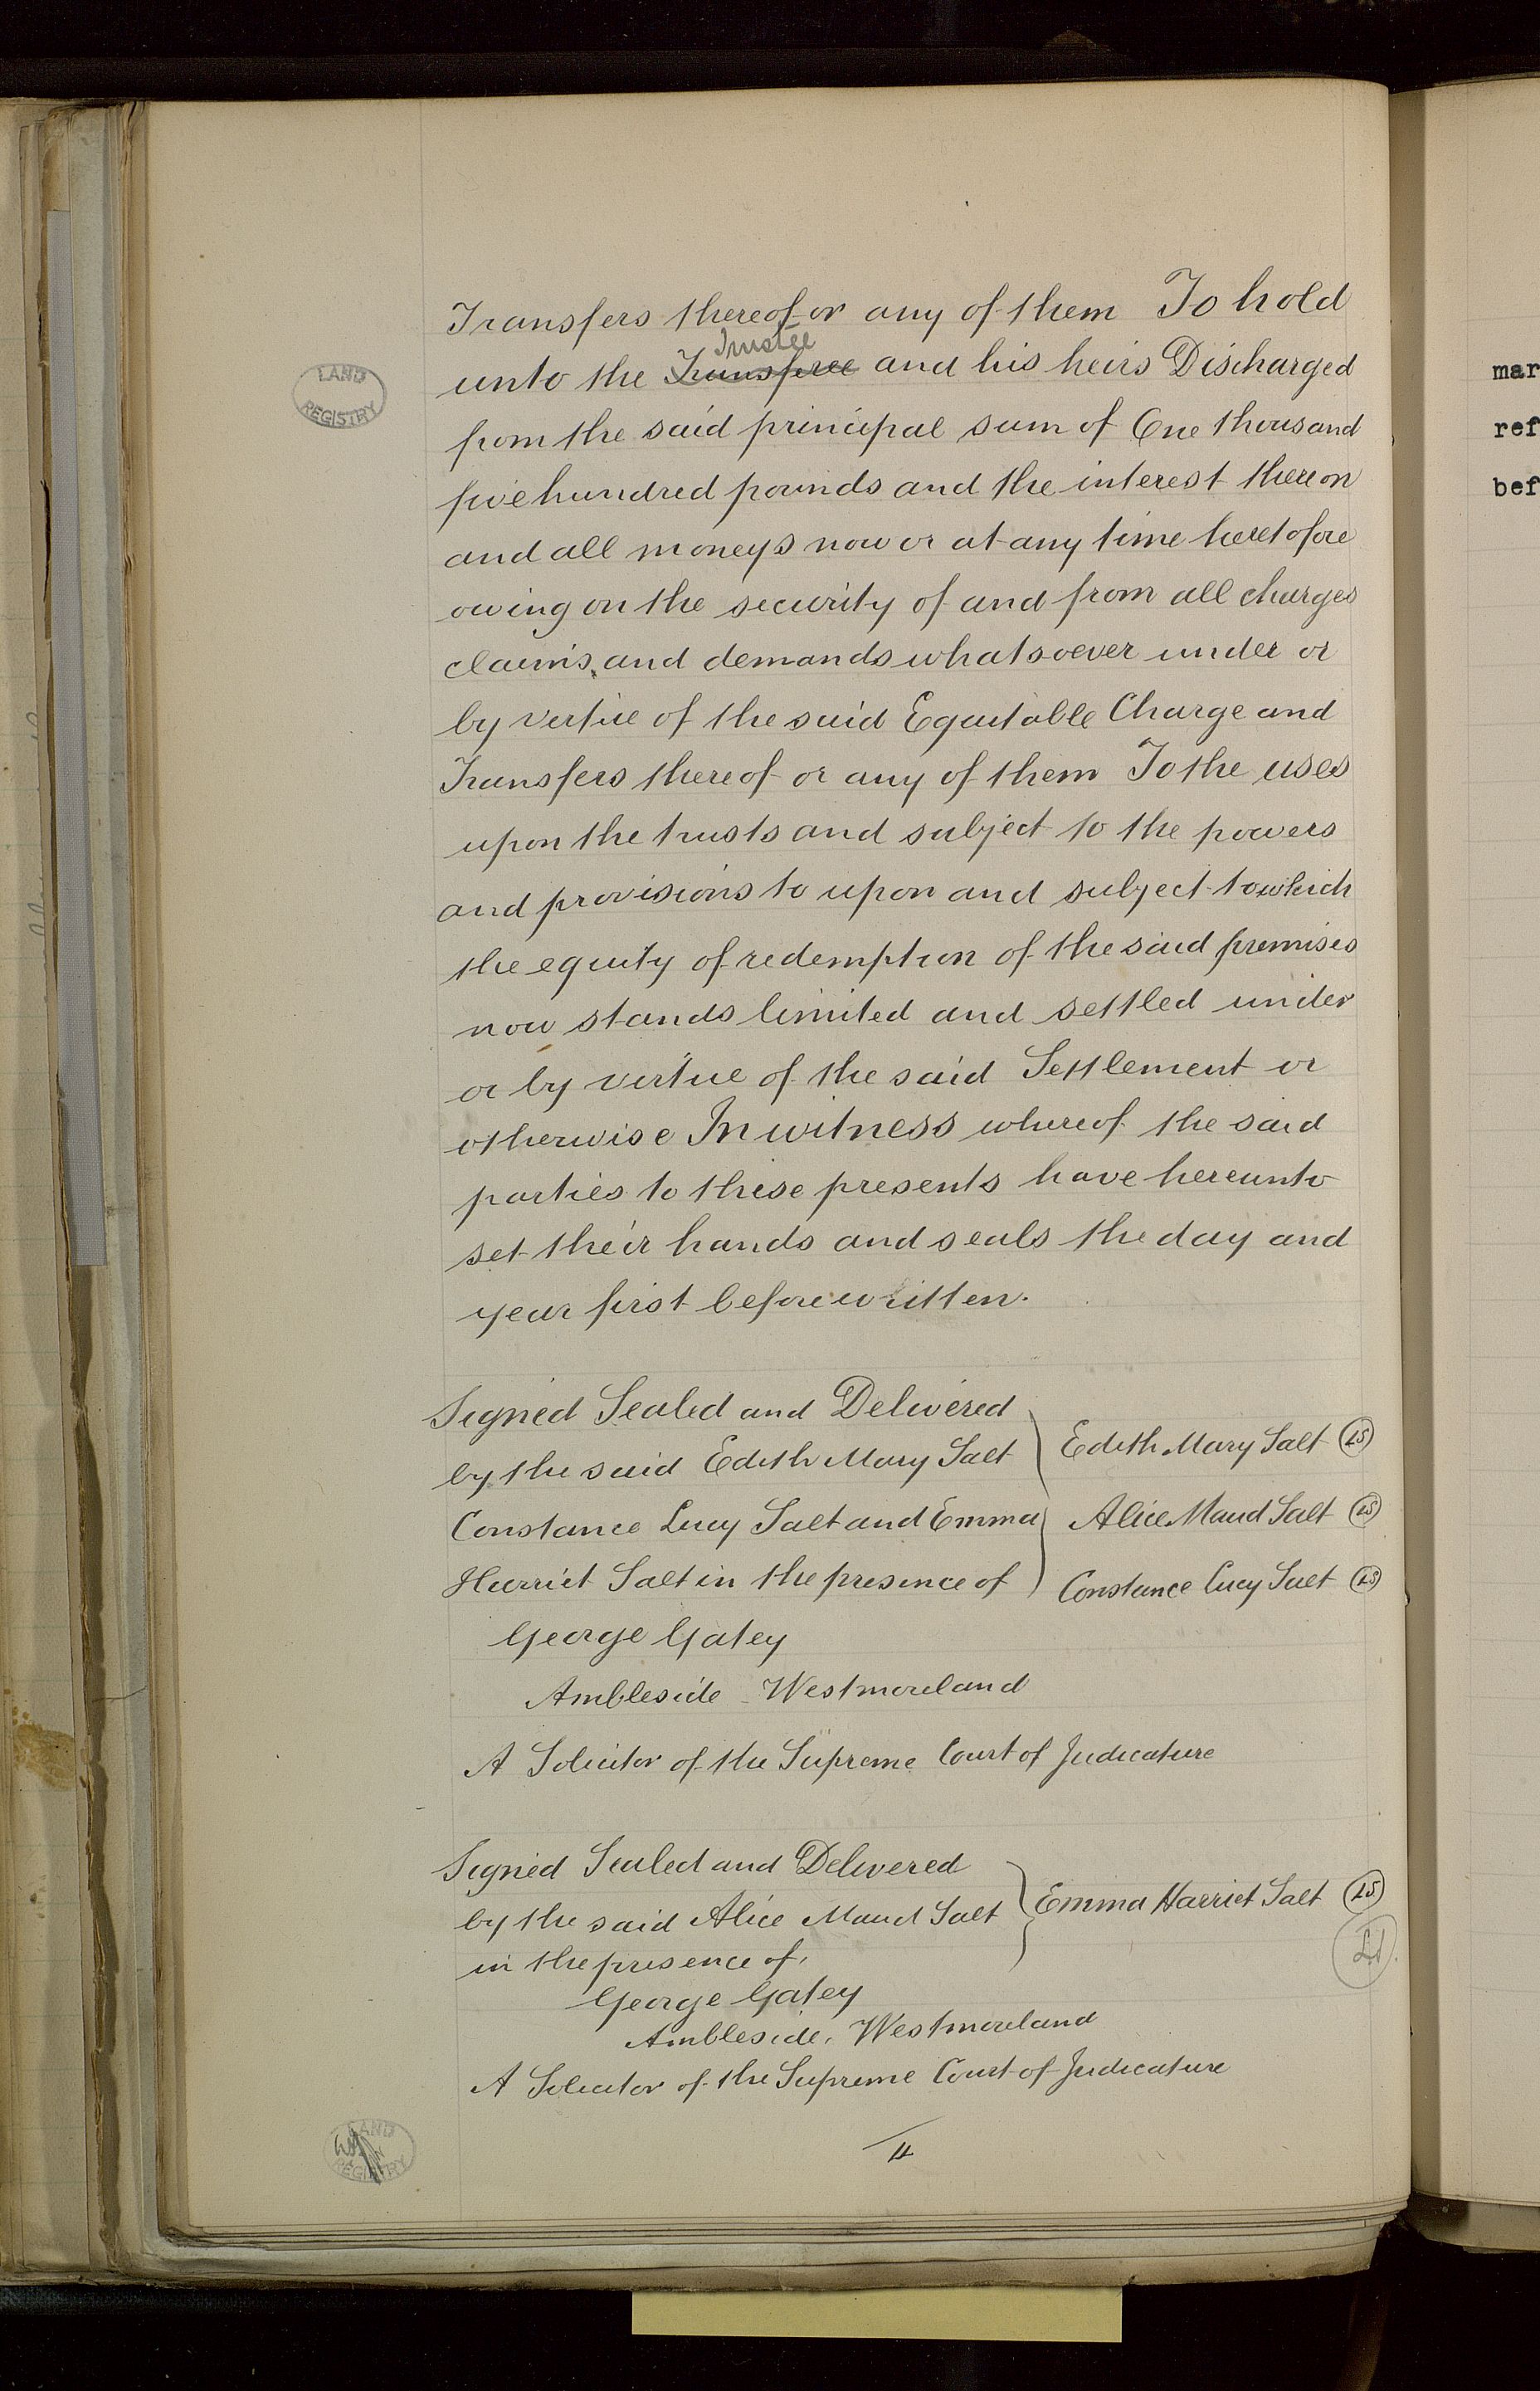 Transfers thereof or any of them To hold
Trustee
unto the Transferee and his heirs Discharged
from the said principal sum of One thousand
five hundred pounds and the interest thereon
and all moneys now or at any time heretofore
owing on the security of and from all charges
claims and demands whatsoever under or
by virtue of the said Equitable Charge and
Transfers thereof or any of them To the uses
upon the trusts and subject to the powers
and provisions to upon and subject to which
the equity of redemption of the said premises
now stands limited and settled under
or by virtue of the said Settlement or
otherwise In witness whereof the said
parties to these presents have hereunto
set their hands and seals the day and
year first before written.
Signed Sealed and Delivered
by the said Edith Mary Salt
Constance Lucy Salt and Emma
Harriet Salt in the presence of
Edith Mary Salt LS
Alice Maud Salt LS
Constance Lucy Salt LS
George Gatey
Ambleside Westmoreland
A Solicitor of the Supreme Court of Judicature
Signed Sealed and Delivered
by the said Alice Maud Salt
in the presence of
Emma Harriet Salt LS
George Gatey
Ambleside, Westmoreland
A Solicitor of the Supreme Court of Judicature
LAND
REGISTRY
LAND
REGISTRY
mar
ref
bef